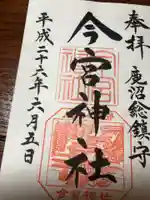 奉拝
鹿沼総鎮守
今宮神社
平成二十六年六月五日